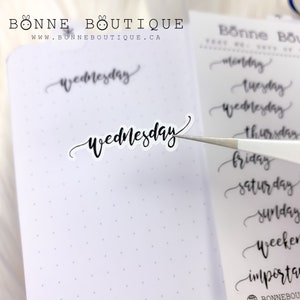 BONNE BOUTIQUE
WWW.BONNEBOUTIQUE.CA
wednesday
wednesday
BONNE BOUTIQUE
monday
tuesday
wednesday
thursday
friday
saturday
sunday
weekend
important
BONNEBOUT